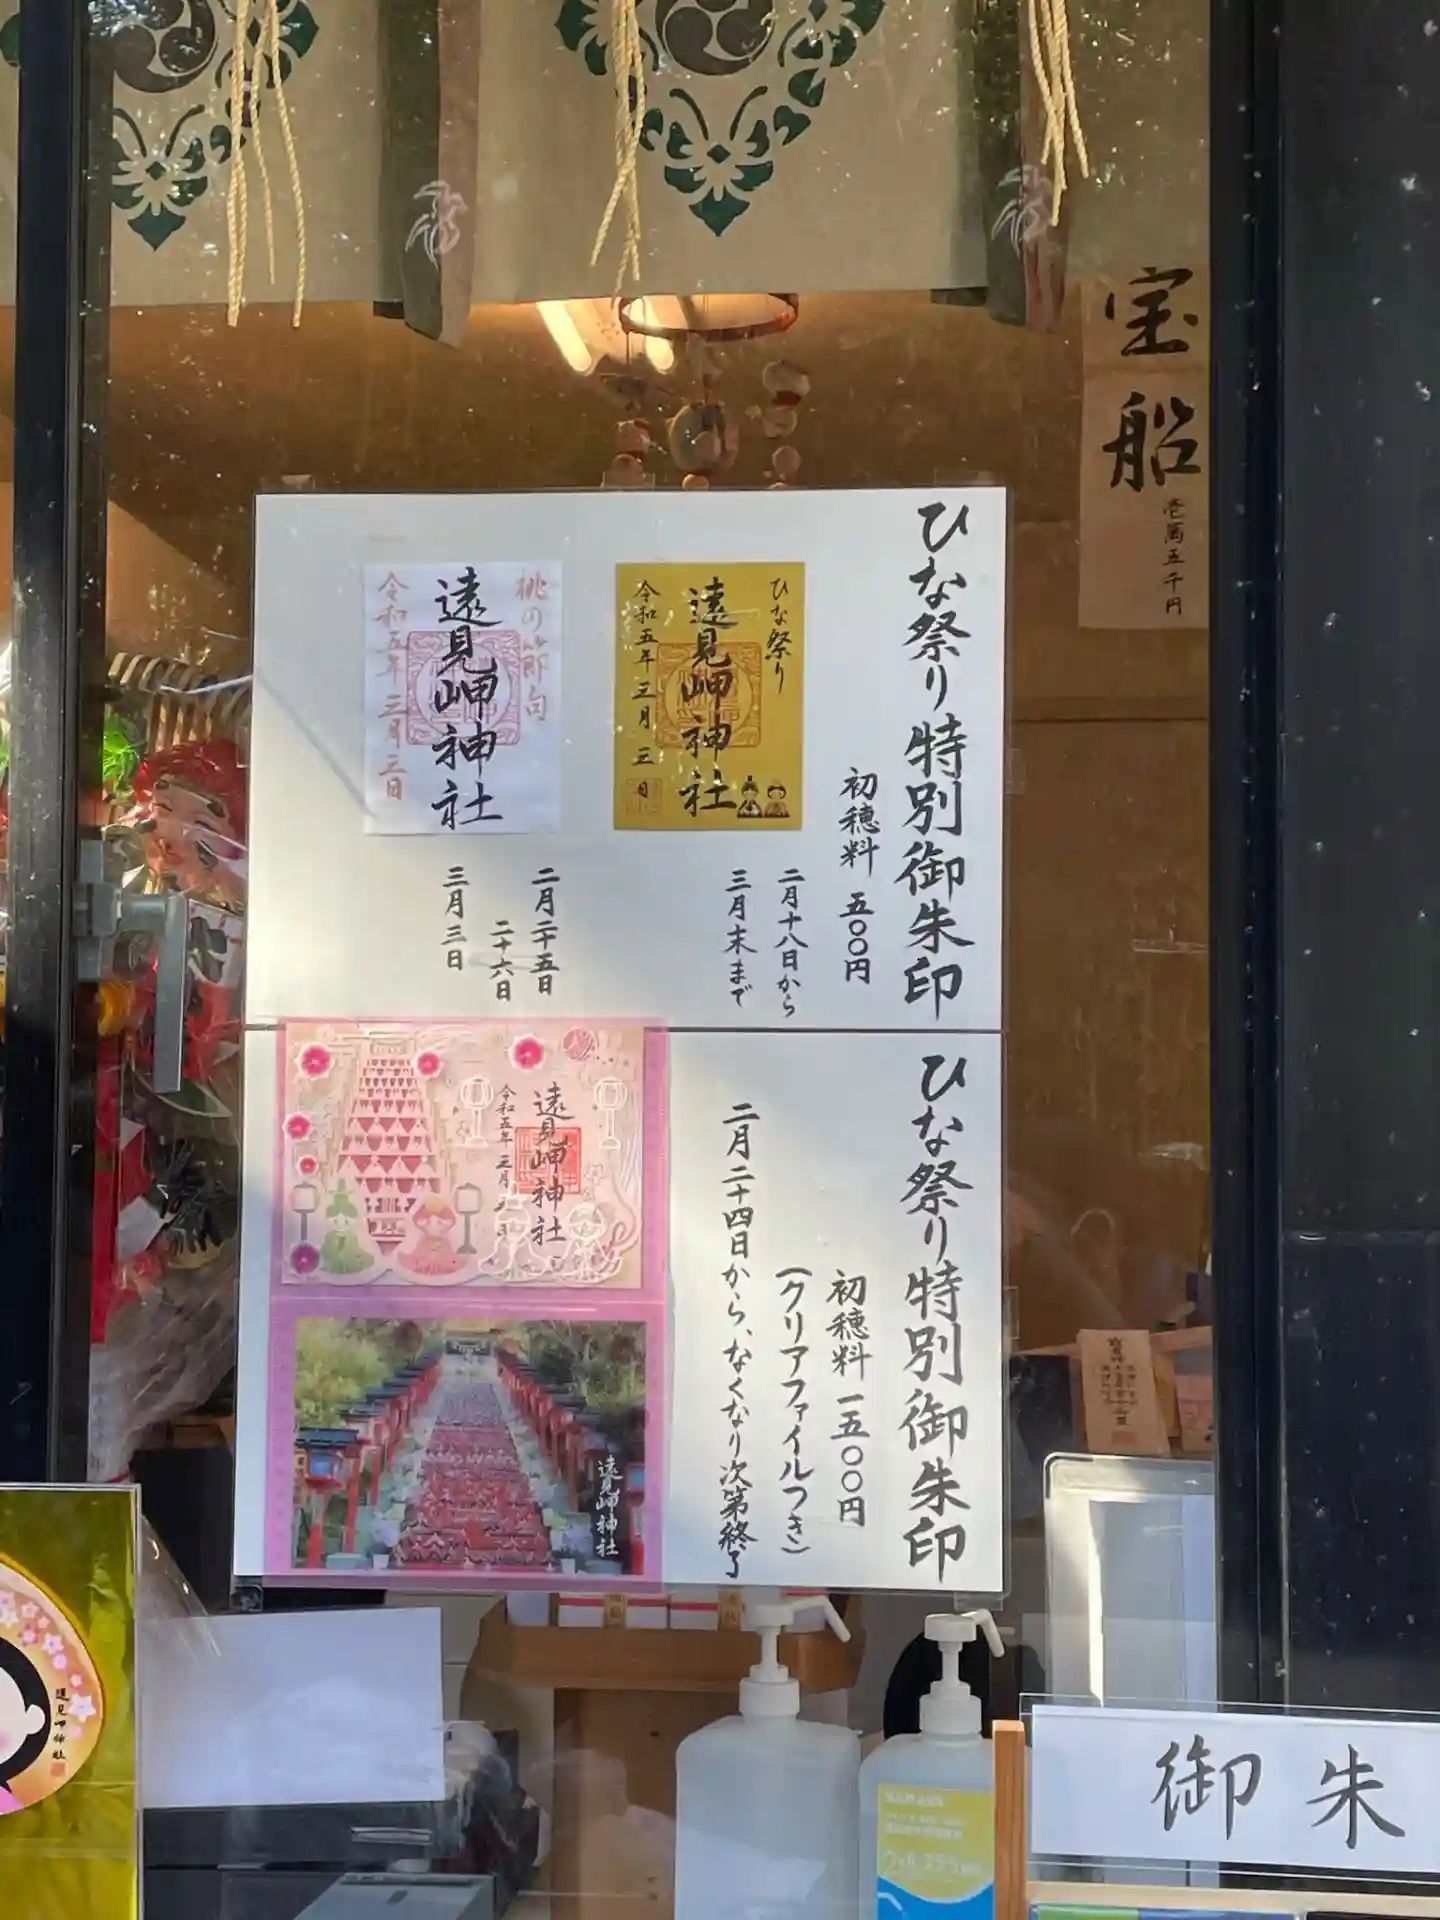 宝船
壱萬五千円
ひな祭り特別御朱印
初穂料 五〇〇円
ひな祭り
遠見岬神社
令和五年三月三日
二月十八日から
三月末まで
桃の節句
遠見岬神社
令和五年三月三日
二月二十五日
二十六日
三月三日
ひな祭り特別御朱印
初穂料 一五〇〇円
(クリアファイルつき)
二月二十四日から、なくなり次第終了
遠見岬神社
令和五年三月
遠見岬神社
遠見岬神社
御朱